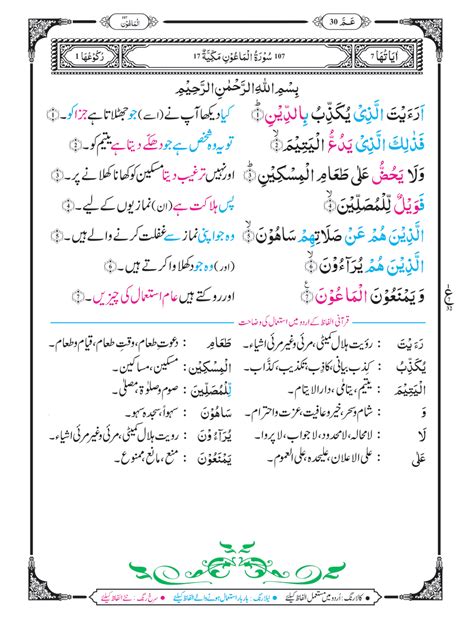 الماعون ١٠٧
عَمَّ 30
اٰيَاتُهَا 7
107 سُوْرَةُ الْمَاعُوْنِ مَكِّيَّةٌ 17
رُكُوْعُهَا 1
بِسْمِ اللّٰهِ الرَّحْمٰنِ الرَّحِيْمِ
اَرَءَيْتَ الَّذِيْ يُكَذِّبُ بِالدِّيْنِ ﴿۱﴾ کیا دیکھا آپ نے (اسے) جو جھٹلاتا ہے جزا کو۔ ﴿۱﴾
فَذٰلِكَ الَّذِيْ يَدُعُّ الْيَتِيْمَ ﴿۲﴾ تو یہ وہ شخص ہے جو دھکے دیتا ہے یتیم کو۔ ﴿۲﴾
وَلَا يَحُضُّ عَلٰى طَعَامِ الْمِسْكِيْنِ ﴿۳﴾ اور نہیں ترغیب دیتا مسکین کو کھانا کھلانے پر۔ ﴿۳﴾
فَوَيْلٌ لِّلْمُصَلِّيْنَ ﴿۴﴾ پس ہلاکت ہے (ان) نمازیوں کے لیے۔ ﴿۴﴾
الَّذِيْنَ هُمْ عَنْ صَلَاتِهِمْ سَاهُوْنَ ﴿۵﴾ وہ جو اپنی نماز سے غفلت کرنے والے ہیں۔ ﴿۵﴾
الَّذِيْنَ هُمْ يُرَآءُوْنَ ﴿۶﴾ (اور) وہ جو دکھلاوا کرتے ہیں۔ ﴿۶﴾
وَيَمْنَعُوْنَ الْمَاعُوْنَ ﴿۷﴾ اور روکتے ہیں عام استعمال کی چیزیں۔ ﴿۷﴾
قرآنی الفاظ کے اردو میں استعمال کی وضاحت
رَءَيْتَ : رویت ہلال کمیٹی، مرئی و غیر مرئی اشیاء۔ طَعَامِ : دعوت طعام، وقتِ طعام، قیام و طعام۔
يُكَذِّبُ : کذب بیانی، کاذب، تکذیب، کذّاب۔ الْمِسْكِيْنِ : مسکین، مساکین۔
الْيَتِيْمَ : یتیم، یتامی، دارالایتام۔ لِّلْمُصَلِّيْنَ : صوم و صلوٰۃ، مصلی۔
وَ : شام و سحر، خیر و عافیت، عزت و احترام۔ سَاهُوْنَ : سہواً، سجدہ سہو۔
لَا : لامحالہ، لامحدود، لاجواب، لاپروا۔ يُرَآءُوْنَ : رویت ہلال کمیٹی، مرئی و غیر مرئی اشیاء۔
عَلٰى : علی الاعلان، علیحدہ، علی العموم۔ يَمْنَعُوْنَ : منع، مانع، ممنوع۔
ع
• کالا رنگ: اردو میں مستعمل الفاظ کیلئے • نیلا رنگ: بار بار استعمال ہونے والے الفاظ کیلئے • سرخ رنگ: نئے الفاظ کیلئے